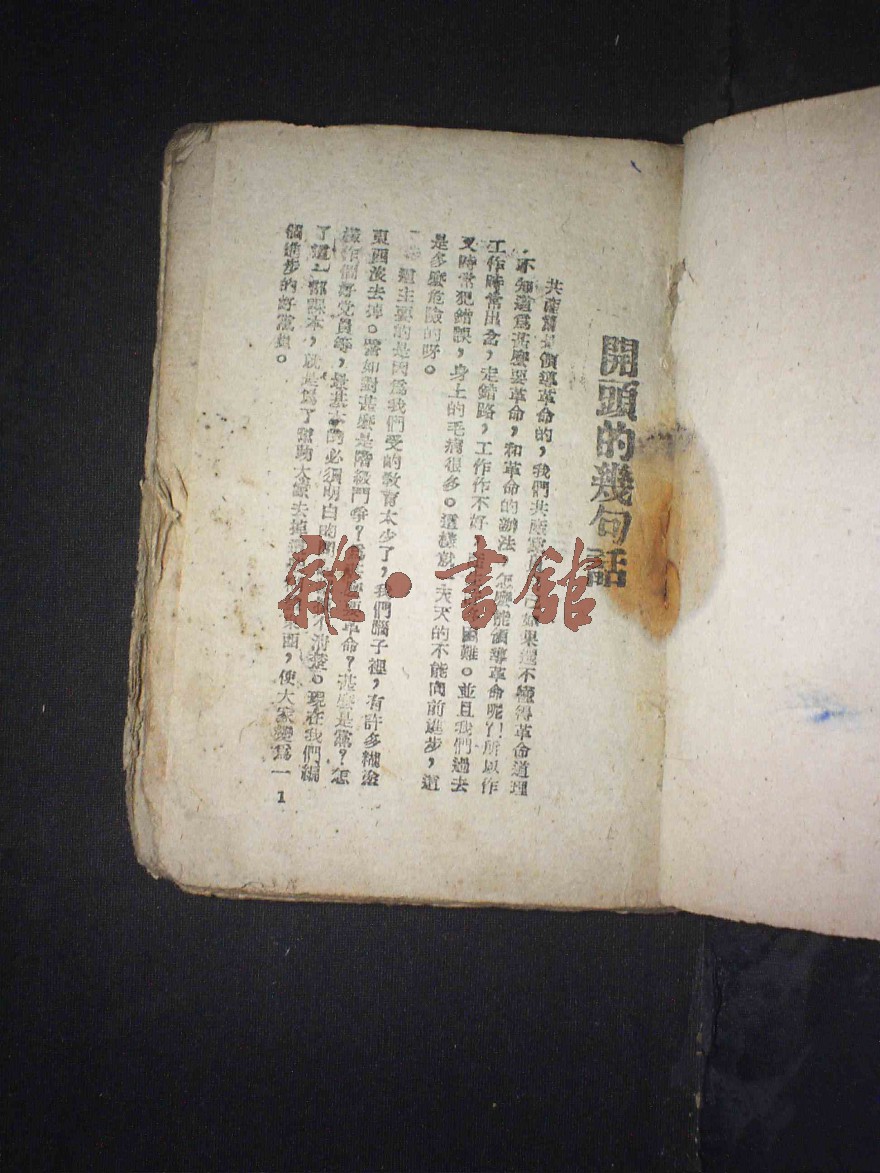 開頭的幾句話
共產黨是領導革命的，我們共產黨員自己如果還不懂得革命道理
，不知道爲甚麽要革命，和革命的辦法，怎麽能領導革命呢？！所以作
工作時常出岔，走錯路，工作作不好，困難。並且我們過去
又時常犯錯誤，身上的毛病很多。這樣天天的不能向前進步，這
是多麽危險的呀。
這主要的是因爲我們受的教育太少了，我們腦子裡，有許多糊塗
東西沒去掉。譬如對甚麽是階級鬥爭？爲甚麽要革命？甚麽是黨？怎
樣作個好党員等，最基本的必須明白的問不清楚。現在我們編
了這一部課本，就是爲了幫助大家去掉東西，使大家變爲一
個進步的好黨員。
1
雜·書館